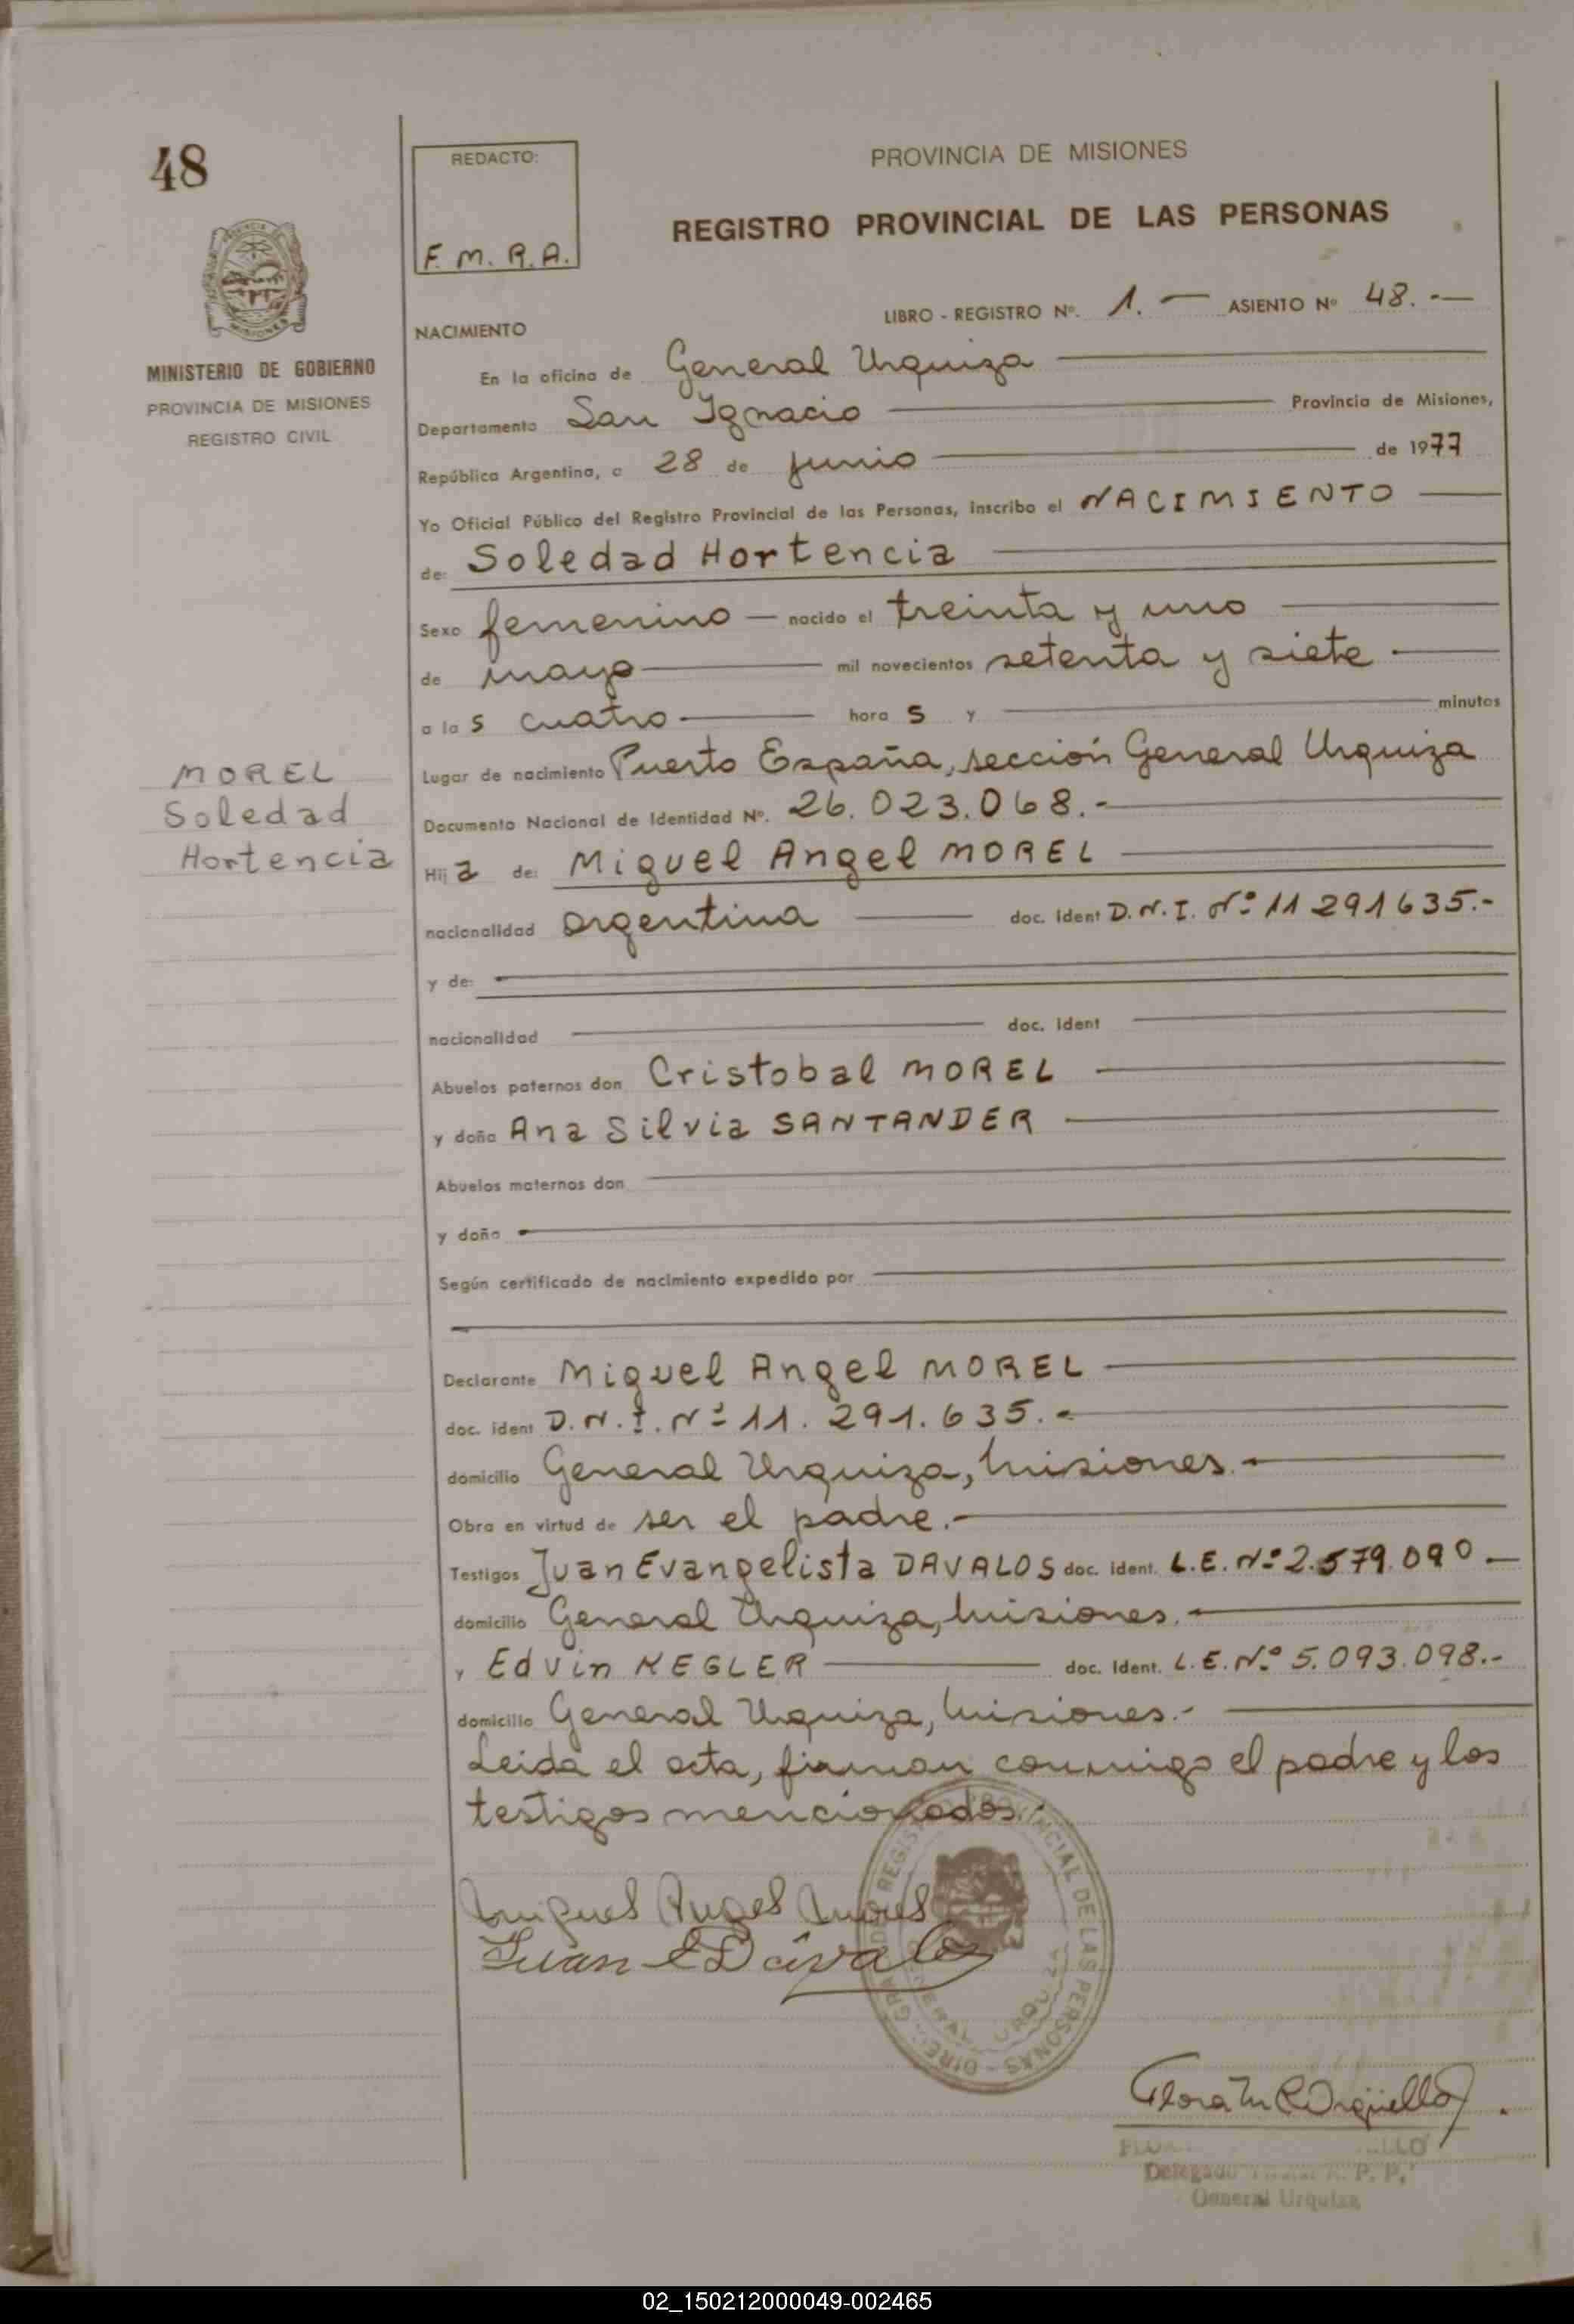 48
MINISTERIO DE GOBIERNO
PROVINCIA DE MISIONES
REGISTRO CIVIL
REDACTO:
F. M. R. A.
PROVINCIA DE MISIONES
REGISTRO PROVINCIAL DE LAS PERSONAS
LIBRO - REGISTRO Nº. 1.- ASIENTO Nº 48.-
NACIMIENTO
En la oficina de General Urquiza
Departamento San Ignacio Provincia de Misiones,
República Argentina, a 28 de junio de 1977
Yo Oficial Público del Registro Provincial de las Personas, inscribo el NACIMIENTO
de: Soledad Hortencia
Sexo femenino nacido el treinta y uno
de mayo mil novecientos setenta y siete.
a las cuatro horas y minutos
Lugar de nacimiento Puerto España, sección General Urquiza
Documento Nacional de Identidad Nº. 26.023.068.-
MOREL
Soledad
Hortencia
Hija de: Miguel Angel MOREL
nacionalidad argentina doc. ident D.N.I. Nº 11 291635.-
y de:
nacionalidad doc. ident
Abuelos paternos don Cristobal MOREL
y doña Ana Silvia SANTANDER
Abuelos maternos don
y doña
Según certificado de nacimiento expedido por
Declarante Miguel Angel MOREL
doc. ident D.N.I. Nº 11.291.635.-
domicilio General Urquiza, Misiones.-
Obra en virtud de ser el padre.-
Testigos Juan Evangelista DAVALOS doc. ident. L.E. Nº 2.579.090
domicilio General Urquiza, Misiones.-
y Edvin KEGLER doc. ident. L.E. Nº 5.093.098.-
domicilio General Urquiza, Misiones.-
Leida el acta, firman conmigo el padre y los
testigos mencionados.-
Miguel Angel Morel
Juan E Dávalos
REGISTRO PROVINCIAL DE LAS PERSONAS
GENERAL URQUIZA
Flora M R Argüello
Delegado R. P. P.
General Urquiza
02_150212000049-002465